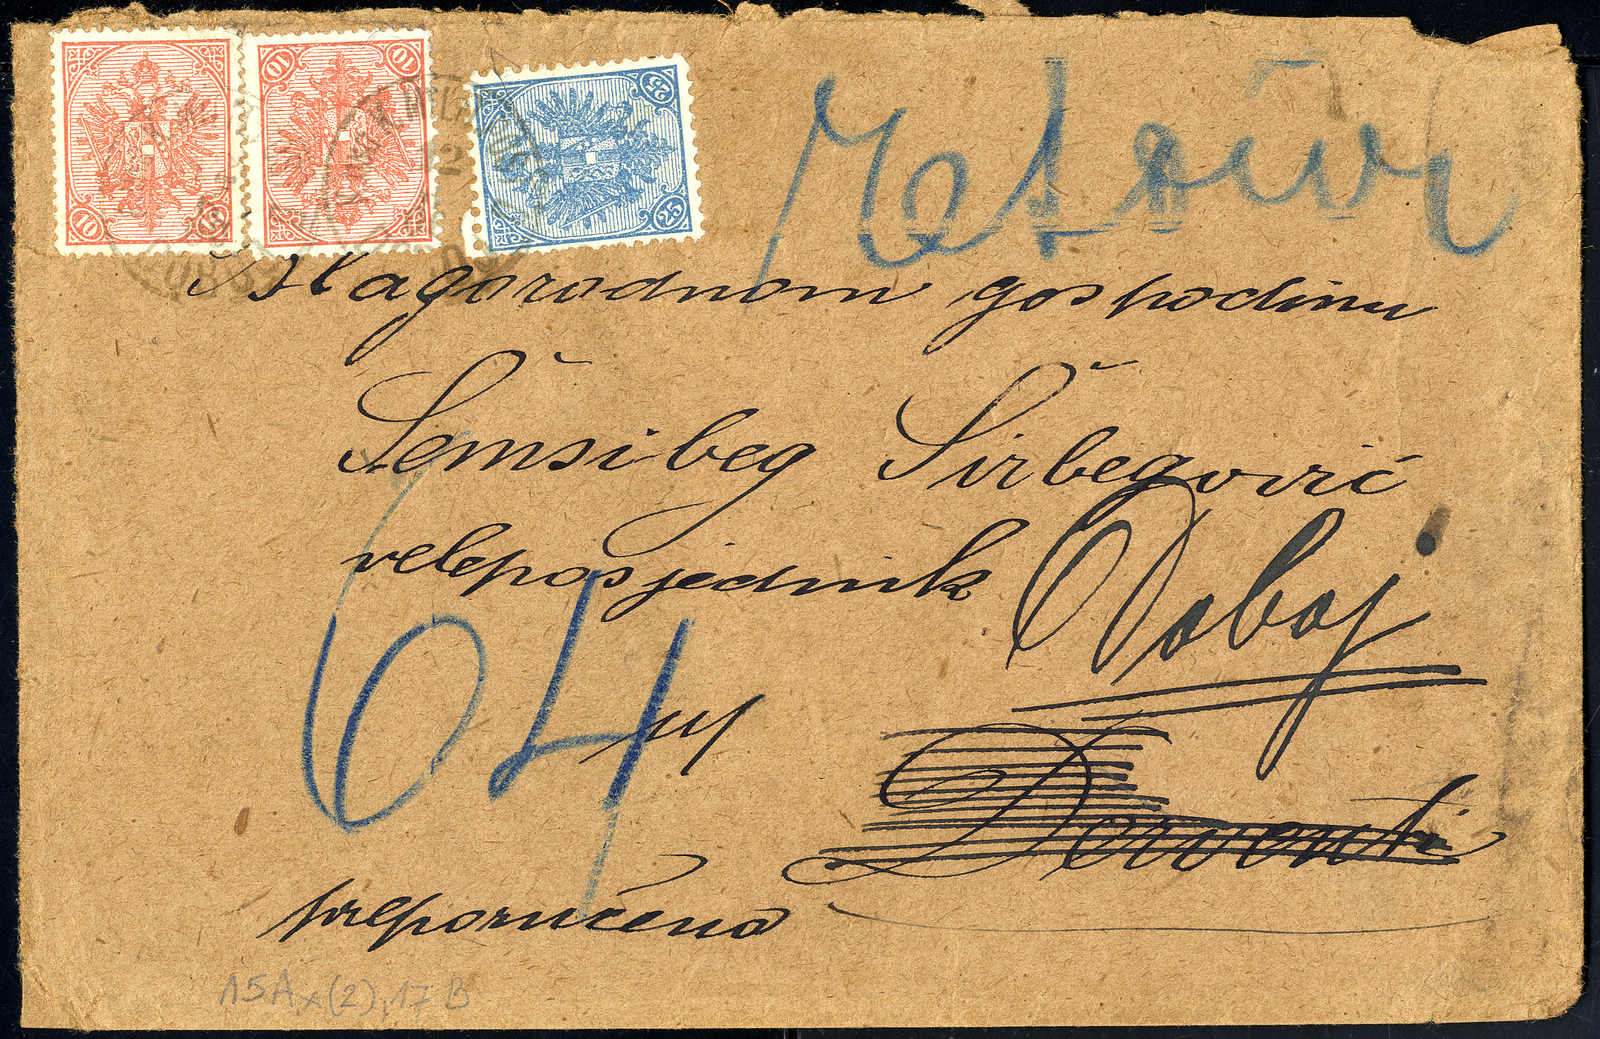 10 10 10 10 25 25
Retour
Blagorodnom gospodinu
Šemsibeg Širbegović
veleposjednik
Doboj
64
u
Derventi
preporučeno
15A x (2), 17 B